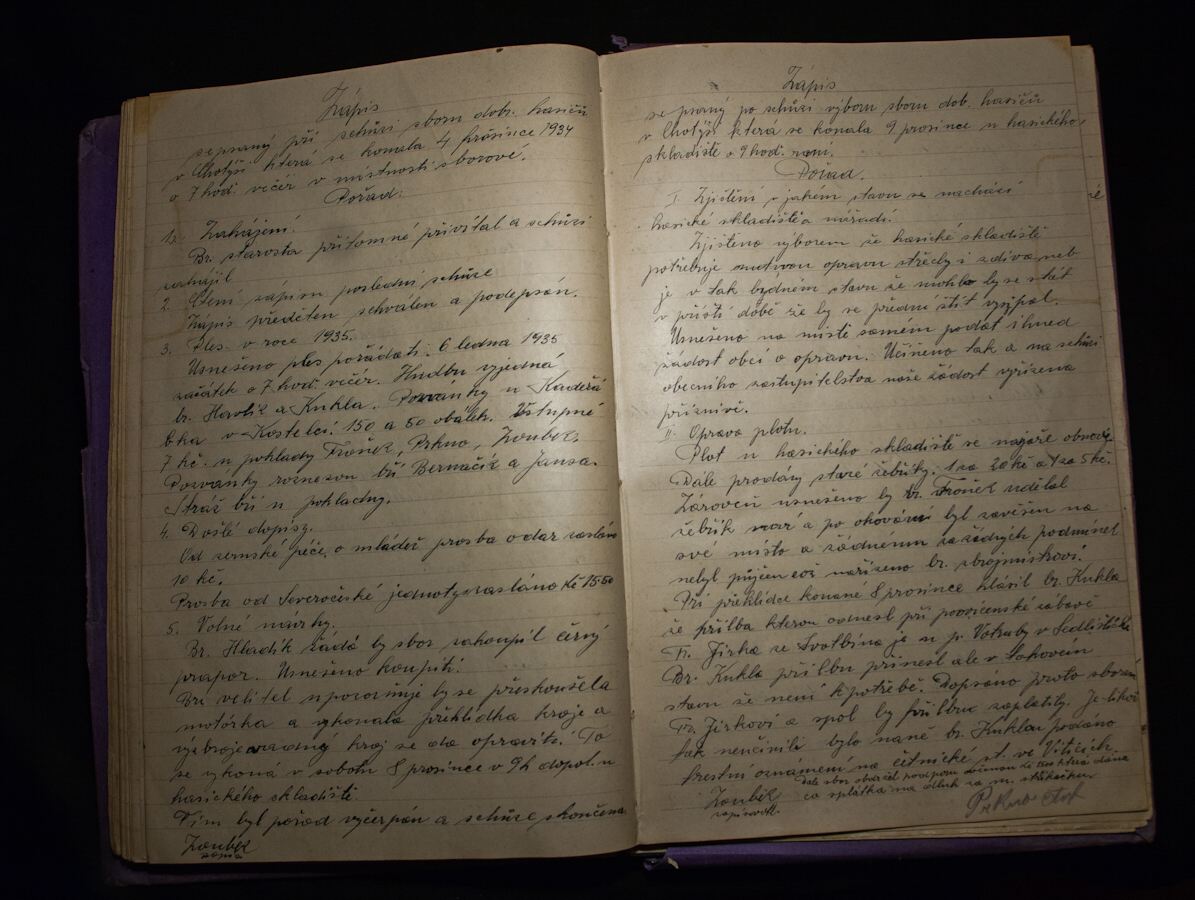 Zápis
sepsaný při schůzi sboru dob. hasičů
v Chotýši která se konala 4 prosince 1934
o 7 hod. večer v místnosti sborové.
Pořad:
1. Zahájení.
Br. starosta přítomné přivítal a schůzi
zahájil
2. Čtení zápisu poslední schůze
Zápis předčten schválen a podepsán.
3. Ples v roce 1935.
Usnešeno ples pořádati: 6 ledna 1935
začátek o 7 hod. večer. Hudbu vyjedná
br. Havlík a Kukla. Pozvánky u Kadeřá
bka v Kostelci: 150 a 50 obálek. Vstupné
7 kč. u poklady Froněk, Prkno, Zoubek.
Pozvánky roznesou bří Bernačík a Jansa.
Stráž bří u pokladny.
4. Došlé dopisy.
Od zemské péče o mládež prosba o dar zasláno
10 kč.
Prosba od Severočeské jednoty zasláno Kč 15·50
5. Volné návrhy.
Br. Hladík žádá by sbor zakoupil černý
prapor. Usnešeno koupiti.
Br. velitel upozorňuje by se přeskoušela
motorka a vykonala přehlídka kroje a
výzbroje vadný kroj se dá opraviti. To
se vykoná v sobotu 8 prosince v 9h dopol. u
hasického skladiště.
Tím byl pořad vyčerpán a schůze skončena
Zoubek
Zápis
sepsaný po schůzi výboru sboru dob. hasičů
v Chotýši která se konala 9 prosince u hasického
skladiště o 9 hod. ranní.
Pořad.
I. Zjištění v jakém stavu se nachází
hasické skladiště a nářadí.
Zjištěno výborem že hasické skladiště
potřebuje nutnou opravu střechy i zdiva neb
je v tak bydném stavu že mohlo by se stát
v příští době že by se přední štít vysypal.
Usnešeno na místě samém podat ihned
žádost obci o opravu. Učiněno tak a na schůzi
obecního zastupitelstva naše žádost vyřízena
příznivě.
II. Oprava plotu.
Plot u hasického skladiště se najaře obnoví
Dále prodány staré žebříky. 1 za 20 kč a 1 za 5 kč.
Zároveň usnešeno by br. Froněk udělal
žebřík nový a po okování byl zavěšen na
své místo a žádnému za žádných podmínek
nebyl půjčen což nařízeno br. zbrojmistrovi.
Při přehlídce konané 8 prosince hlásil br. Kukla
že přilba kterou odnesl při posvícenské zábavě
Fr. Jirka ze Svatbína je u p. Votruby v Sedlišťkách
Br. Kukla přilbu přinesl ale v takovém
stavu že není k potřebě. Dopsáno proto sborem
Fr. Jirkovi a spol by přilbu zaplatily. Jelikož
tak neučinili bylo námi br. Kuklou podáno
trestní oznámení na četnické st. ve Viticích.
Dále sbor obdržel podporu
co splátka na dluh za m. stříkačku
Zoubek
zapisovatel.
Prkno Ot